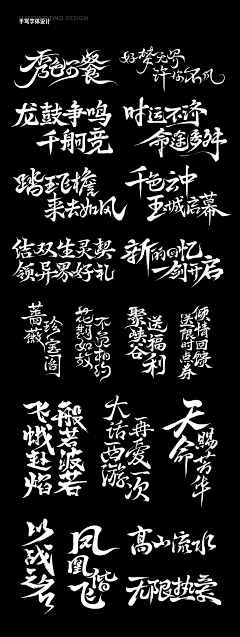 手写字体设计
秀色可餐
好梦无界
许你乘风
龙鼓争鸣
千舸竞
时运不济
命途多舛
踏飞檐
来去如风
千色云中
玉城启幕
结双生灵契
领异界好礼
新的回忆
一剑开启
蔷薇
珍宝阁
花期如故
不负相约
聚峡谷
送福利
倾情回馈
送限时点券
飞蛾赴焰
般若波若
大话西游
再爱一次
天命
赐芳华
以战之名
凤凰
偕飞
高山流水
无限热爱